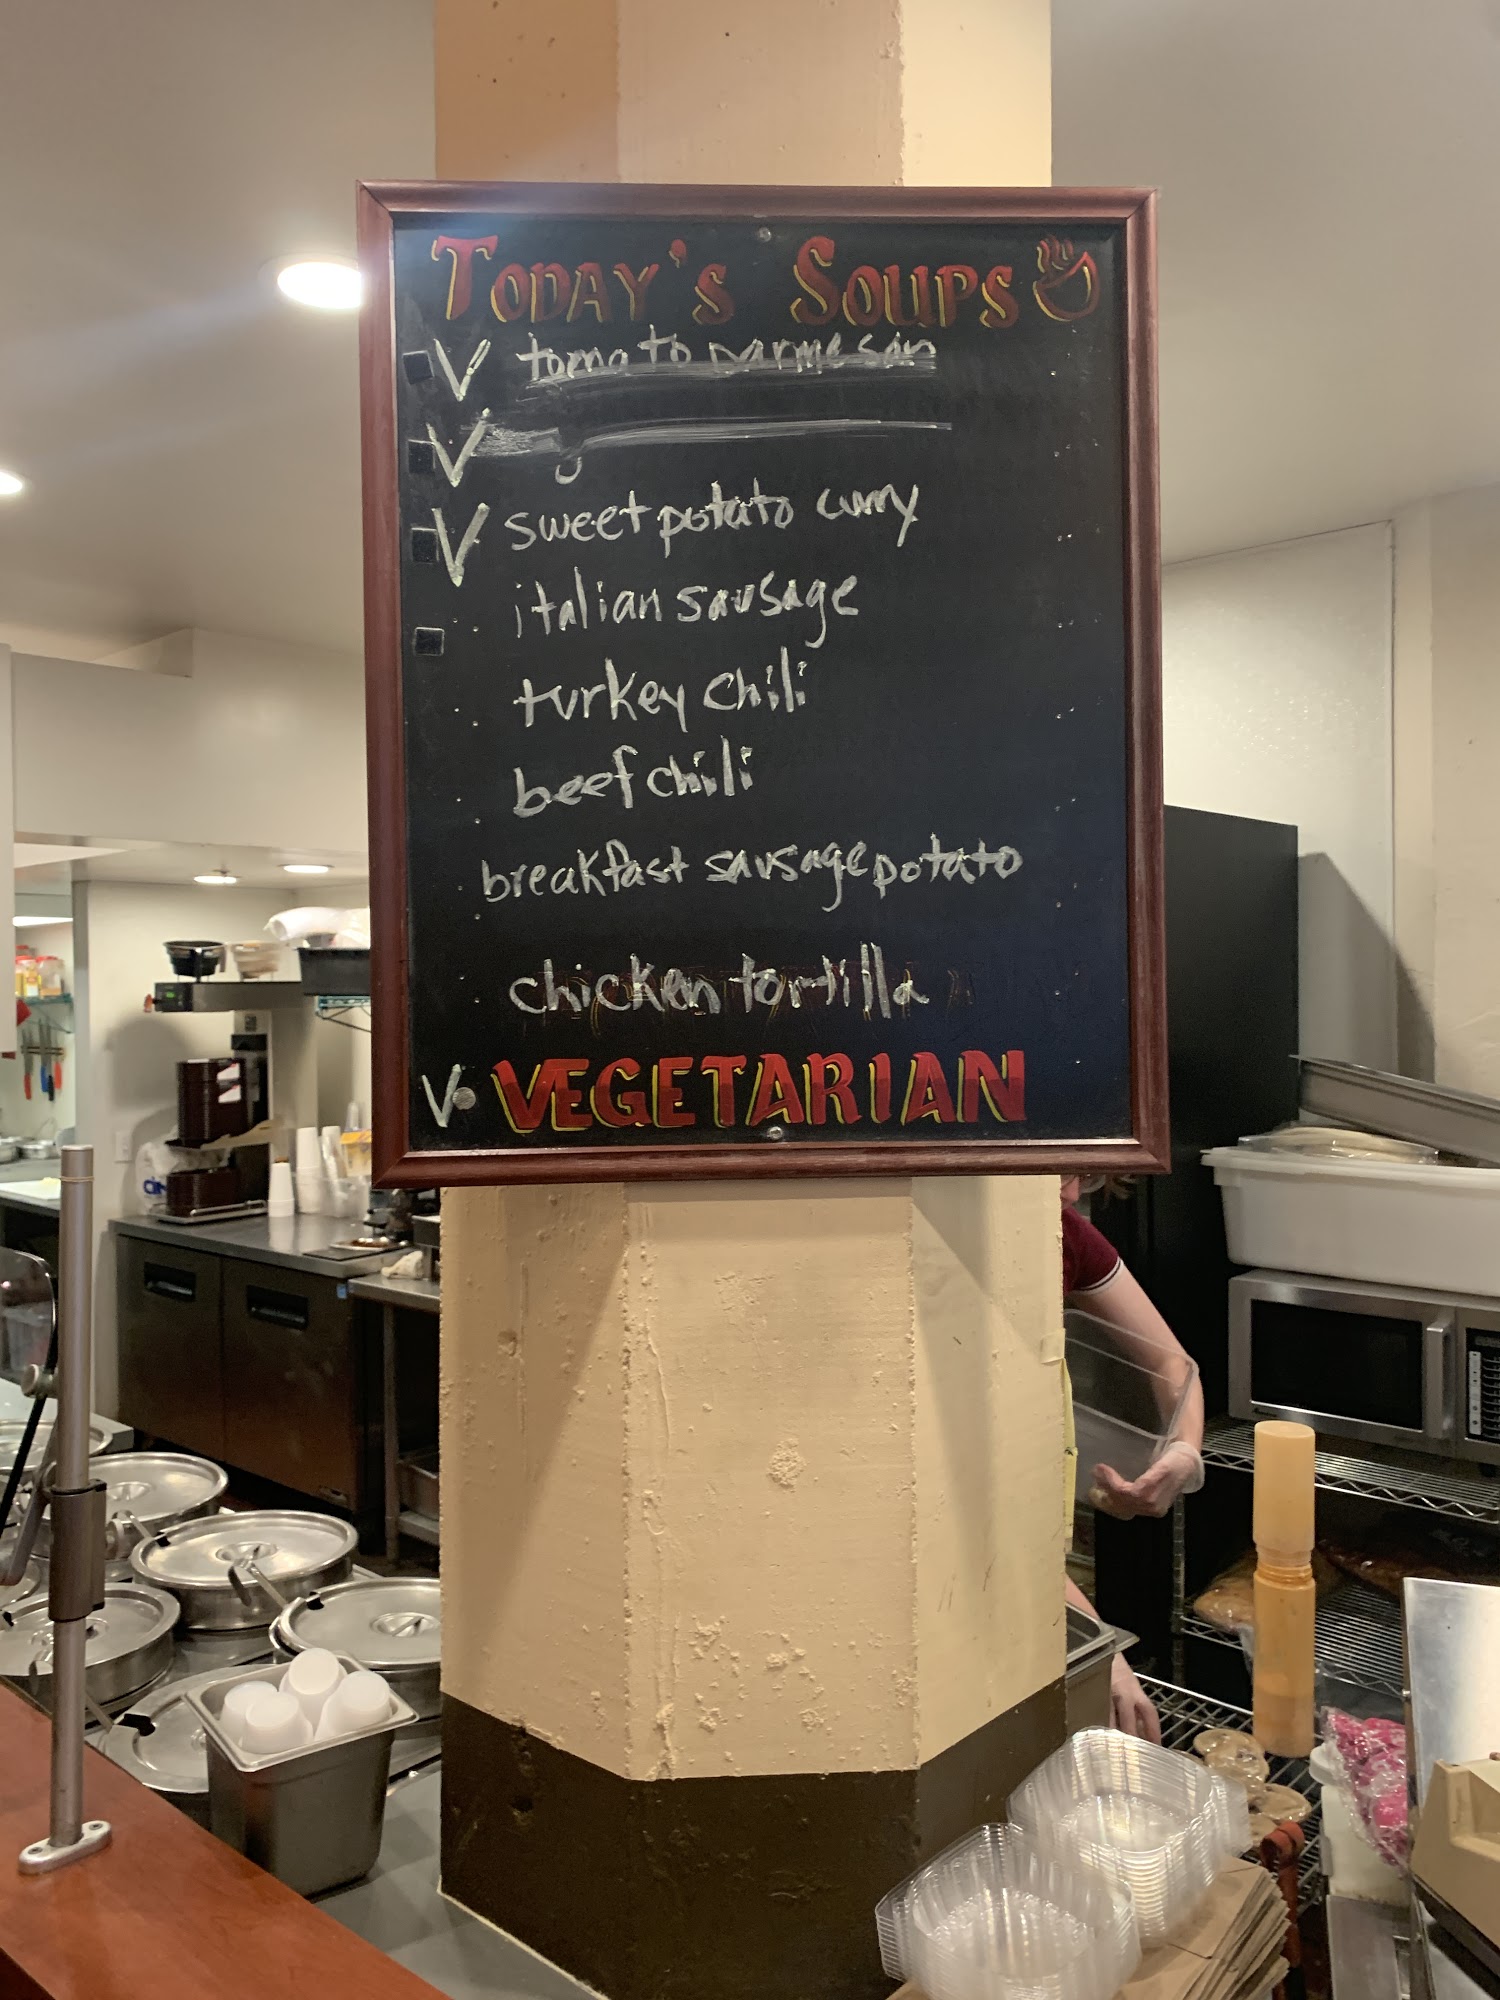 TODAY'S SOUPS
V tomato parmesan
V
V sweet potato curry
italian sausage
turkey chili
beef chili
breakfast sausage potato
chicken tortilla
V• VEGETARIAN